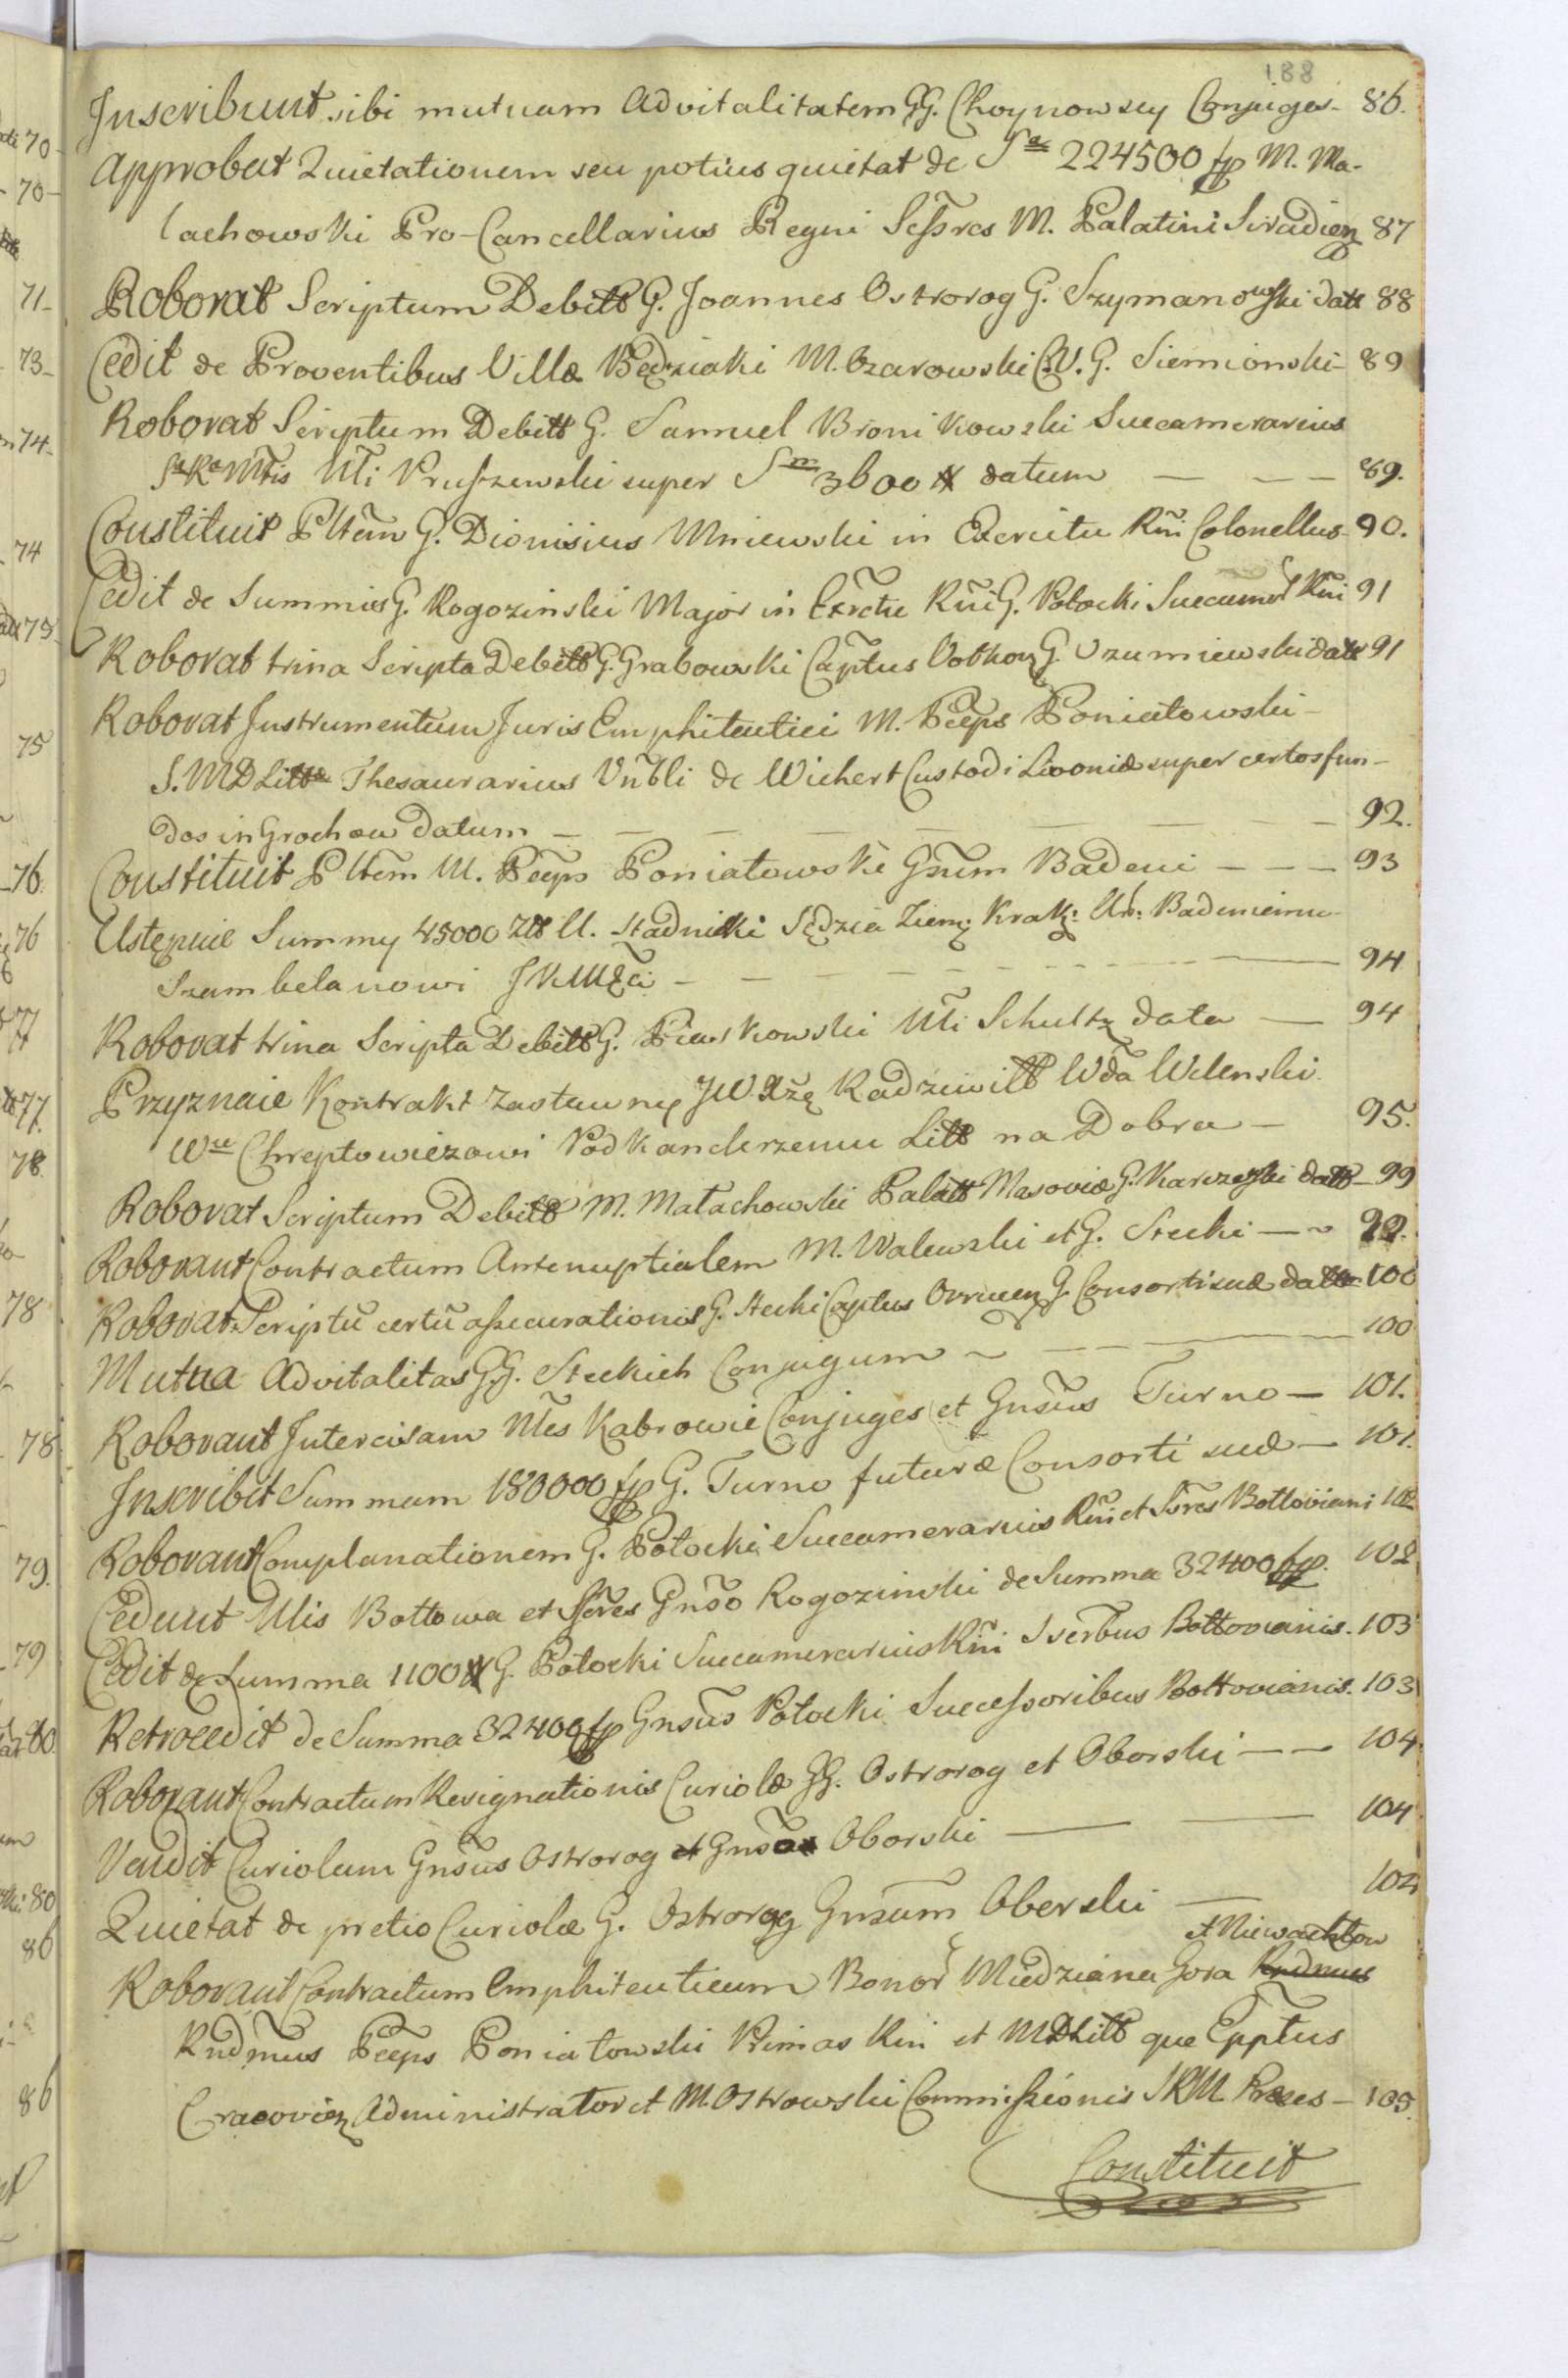 188
Inscribunt sibi mutuam Advitalitatem GG. Choynowscy Conjuges - 86.
Approbat Quietationem seu potius quietat de Sa 224500 fp M. Ma-
lachowski Pro-Cancellarius Regni Sessres M. Palatini Siradien 87
Roborat Scriptum Debiti G. Joannes Ostrorog G. Szymanowski dat 88
Cedit de Proventibus Villæ Będziaki M. Ożarowski C.V. G. Siemionski - 89
Roborat Scriptum Debiti G. Samuel Bronikowski Succamerarius
Sa Ra Mtis Mti Pruszewski super Sm 3600 # datum — — — 89.
Constituit Pltem G. Dionisius Mniewski in Exercitu Rni Colonellus - 90.
Cedit de Summis G. Rogozinski Major in Exrctu Rni G. Potocki Succamer Rni 91
Roborat trina Scripta Debiti G. Grabowski Captus Volkov G. Uzumiewski dat 91
Roborat Instrumentum Juris Emphiteutici M. Pceps Poniatowski -
S. MDLitt Thesaurarius Vnbli de Wichert Custodi Livoniæ super certos fun-
dos in Grochow datum — — — — — — 92.
Constituit Pltem M. Pceps Poniatowski Gsum Badeni — — — 93
Ustępuie Summy 45000 Zł U. Stadnicki Sędzia Ziem: Krak: Ur: Badeniemu
Szambelanowi JKMści — — — — — 94
Roborat trina Scripta Debiti G. Piaskowski Mti Schultz data — 94
Przyznaie Kontrakt zastawny JW Xżę Radziwiłł Wda Wilenski
Wu Chreptowiczowi Podkanclerzemu Litt na Dobra — 95.
Roborat Scriptum Debiti M. Małachowski Palatt Masoviæ G. Karczewski datt - 99
Roborant Contractum Antenuptialem M. Walewski et G. Stecki — 99.
Roborat Scriptū certū assecurationis G. Stecki Captus Ovrucen G. Consorti suæ datt 100
Mutua Advitalitas GG. Steckich Conjugum — — — — 100
Roborant Intercisam Mes Kabrowie Conjuges et Gnsus Turno — 101.
Inscribit Summam 180000 fp G. Turno futuræ Consorti suæ — 101.
Roborant Complanationem G. Potocki Succamerarius Rni et Ssres Bottoviani 102
Cedunt Mlis Bottowa et Ssres Gnso Rogozinski de Summa 32400 fp. 102
Cedit de Summa 1100 # G. Potocki Succamerarius Rni Sserbus Bottovianis. 103
Retrocedit de Summa 32400 fp Gnsus Potocki Successoribus Bottovianis. 103
Roborant Contractum Resignationis Curiolæ GG. Ostrorog et Oborski — — 104
Vendit Curiolam Gnsus Ostrorog Gnso Oborski — — 104
Quietat de pretio Curiolæ G. Ostrorog Gnsum Oberski — 104
et Niewachlow
Roborant Contractum Emphiteuticum Bonor Miedziana Gora Rndmus
Rndmus Pceps Poniatowski Primas Rni et MDLitt que Epptus
Cracovien Administrator et M. Ostrowski Commissionis SRM Præses — 105.
Constituit